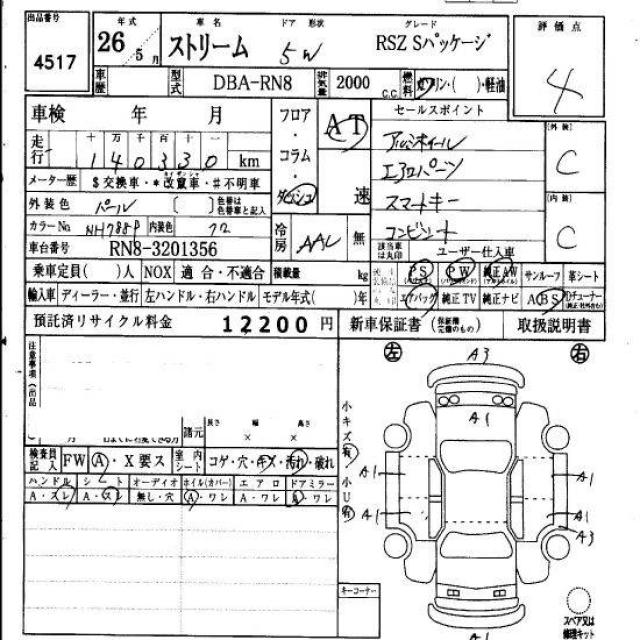 出品番号 年式 車名 ドア 形状 グレード 評価点
4517 26年 5月 ストリーム 5W RSZ Sパッケージ 4
車歴 型式 DBA-RN8 排気量 2000 C.C. 燃料 ガソリン・( )・軽油
車検 年 月 フロア・コラム・ダッシュ AT 速 セールスポイント
十 万 千 百 十 一
走行 140330 km アルミホイール [外装] C
メーター歴 $交換車・*改竄車・#不明車 エアロパーツ
外装色 パール ( ) 色替は色替車と記入 スマートキー [内装] C
カラーNo NH788P 内装色 冷房 AAC 無 コンビシート
車台番号 RN8-3201356 該当車は丸印 ユーザー仕入車
乗車定員( )人 NOX 適合・不適合 積載量 kg PS PW 純正AW サンルーフ 革シート
輸入車 ディーラー・並行 左ハンドル・右ハンドル モデル年式( )年 エアバッグ 純正TV 純正ナビ ABS
預託済リサイクル料金 12200円 新車保証書 (保証書元帳のもの) 取扱説明書
注意事項(出品 左 A3 右
A1
小キズ有 小U有
諸元 長さ 幅 高さ × ×
検査員記入 FW A・X要ス 室内シート コゲ・穴・キズ・汚れ・破れ
ハンドル シート オーディオ ホイル(カバー) エアロ ドアミラー
A・ズレ A・スレ 無し・穴 A・ワレ A・ワレ A・ワレ
A1 A1
A1 A1
A3
キーコーナー
スペア又は修理キット
A1